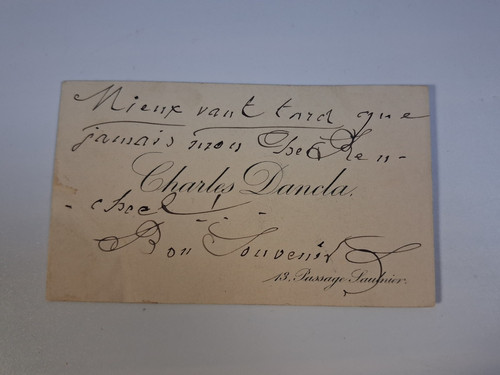 Mieux vaut tard que
jamais mon cher Ren-
Charles Dancla.
- chsel!
Bon Souvenir
13. Passage Saulnier.